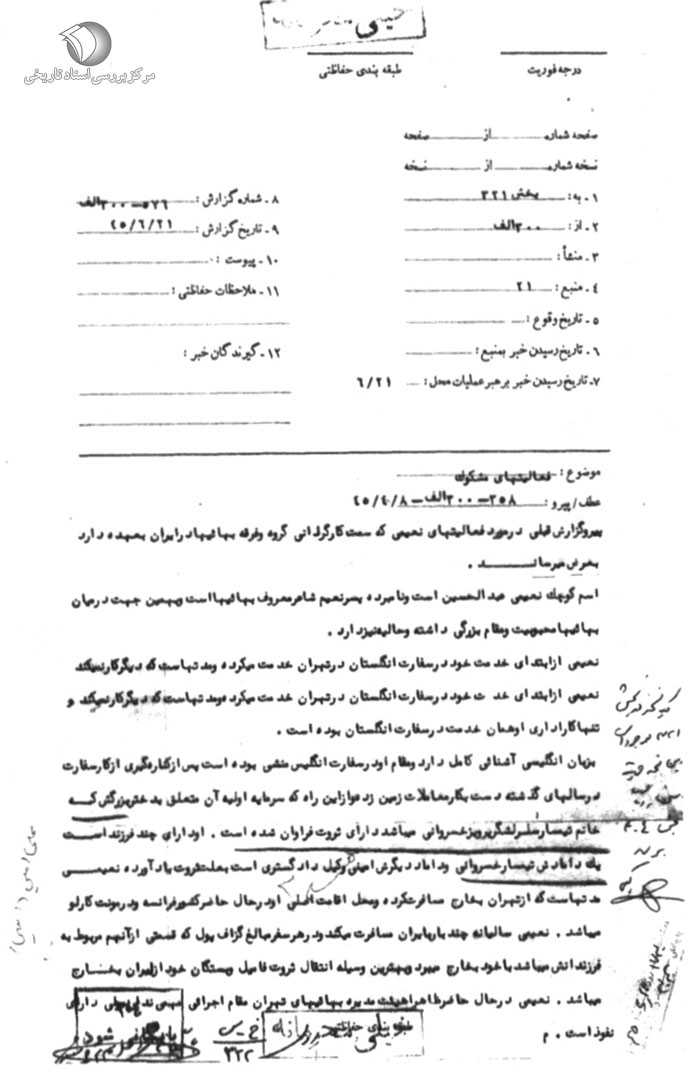 مرکز بررسی اسناد تاریخی
خیلی محرمانه
درجه فوریت
طبقه بندی حفاظتی
صفحه شماره از صفحه
نسخه شماره از نسخه
۱ ـ به : بخش ۳۲۱
۲ ـ از : ۳۰۰ الف
۳ ـ منشأ :
۴ ـ منبع : ۲۱
۵ ـ تاریخ وقوع :
۶ ـ تاریخ رسیدن خبر بمنبع :
۷ ـ تاریخ رسیدن خبر برهبر عملیات محل : ۶/۲۱
۸ ـ شماره گزارش : ۵۷۶ــ۳۰۰ الف
۹ ـ تاریخ گزارش : ۴۵/۶/۲۱
۱۰ ـ پیوست :
۱۱ ـ ملاحظات حفاظتی :
۱۲ ـ گیرندگان خبر :
موضوع : فعالیتهای مشکوک
عطف / پیرو : ۲۵۸ــ۳۰۰ الف ــ ۴۵/۴/۸
پیروگزارش قبلی در مورد فعالیتهای نعیمی که سمت کارگردانی گروه وفرقه بهائیهادرایران بعهده دارد
بعرض میرساند .
اسم کوچک نعیمی عبدالحسین است ونامبرده پسرنعیم شاعرمعروف بهائیهااست وبهمین جهت درمیان
بهائیهامحبوبیت ومقام بزرگی داشته وحالیه نیزدارد .
نعیمی ازابتدای خدمت خود درسفارت انگلستان درتهران خدمت میکرده ومدتهاست که دیگرکارنمیکند
نعیمی ازابتدای خد ت خود درسفارت انگلستان درتهران خدمت میکرده ومدتهاست که دیگرکارنمیکند و
تنهاکاراداری اوهمان خدمت درسفارت انگلستان بوده است .
بزبان انگلیسی آشنائی کامل دارد ومقام اودرسفارت انگلیس منشی بوده است پس ازکناره‌گیری ازکارسفارت
درسالهای گذشته دست بکارمعاملات زمین زد ه وازاین راه که سرمایه اولیه آن متعلق بدختربزرگش که
خانم تیمسارسرلشگرپرویزخسروانی میباشد دارای ثروت فراوان شده است . اودارای چند فرزنداست
یک دامادش تیمسارخسروانی وداماد دیگرش امینی وکیل دادگستری است بعلت ثروت یاد آورده نعیمی
مدتهاست که ازتهران بخارج مسافرتکرده ومحل اقامت اصلی اودرحال حاضرکشورفرانسه ودرمونت کارلو
میباشد . نعیمی سالیانه چند باربایران مسافرت میکند ودرهرسفرمبالغ گزاف پول که قسمتی ازآنهم مربوط به
فرزندانش میباشد باخود بخارج میبرد وبهترین وسیله انتقال ثروت فامیل وبستگان خود ازایران بخارج
میباشد . نعیمی درحال حاضرظاهراهیئت مدیره بهائیهای تهران مقام اجرائی مهمی ندارد ولی دارای
نفوذ است . م
طبقه بندی حفاظتی
خیلی محرمانه
۳۲۲
بایگانی شود